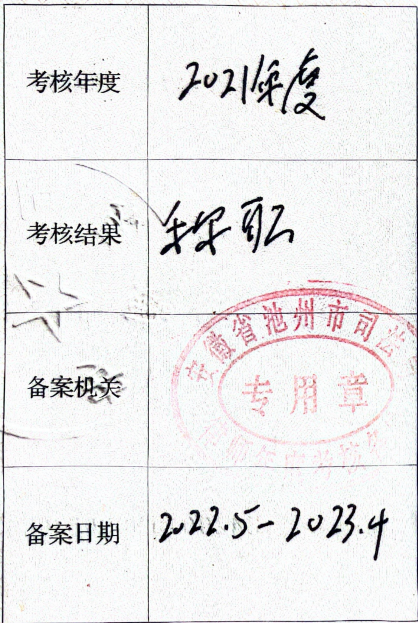 考核年度
2021年度
考核结果
称职
安徽省池州市司法
专用章
备案机关
备案日期
2022.5-2023.4